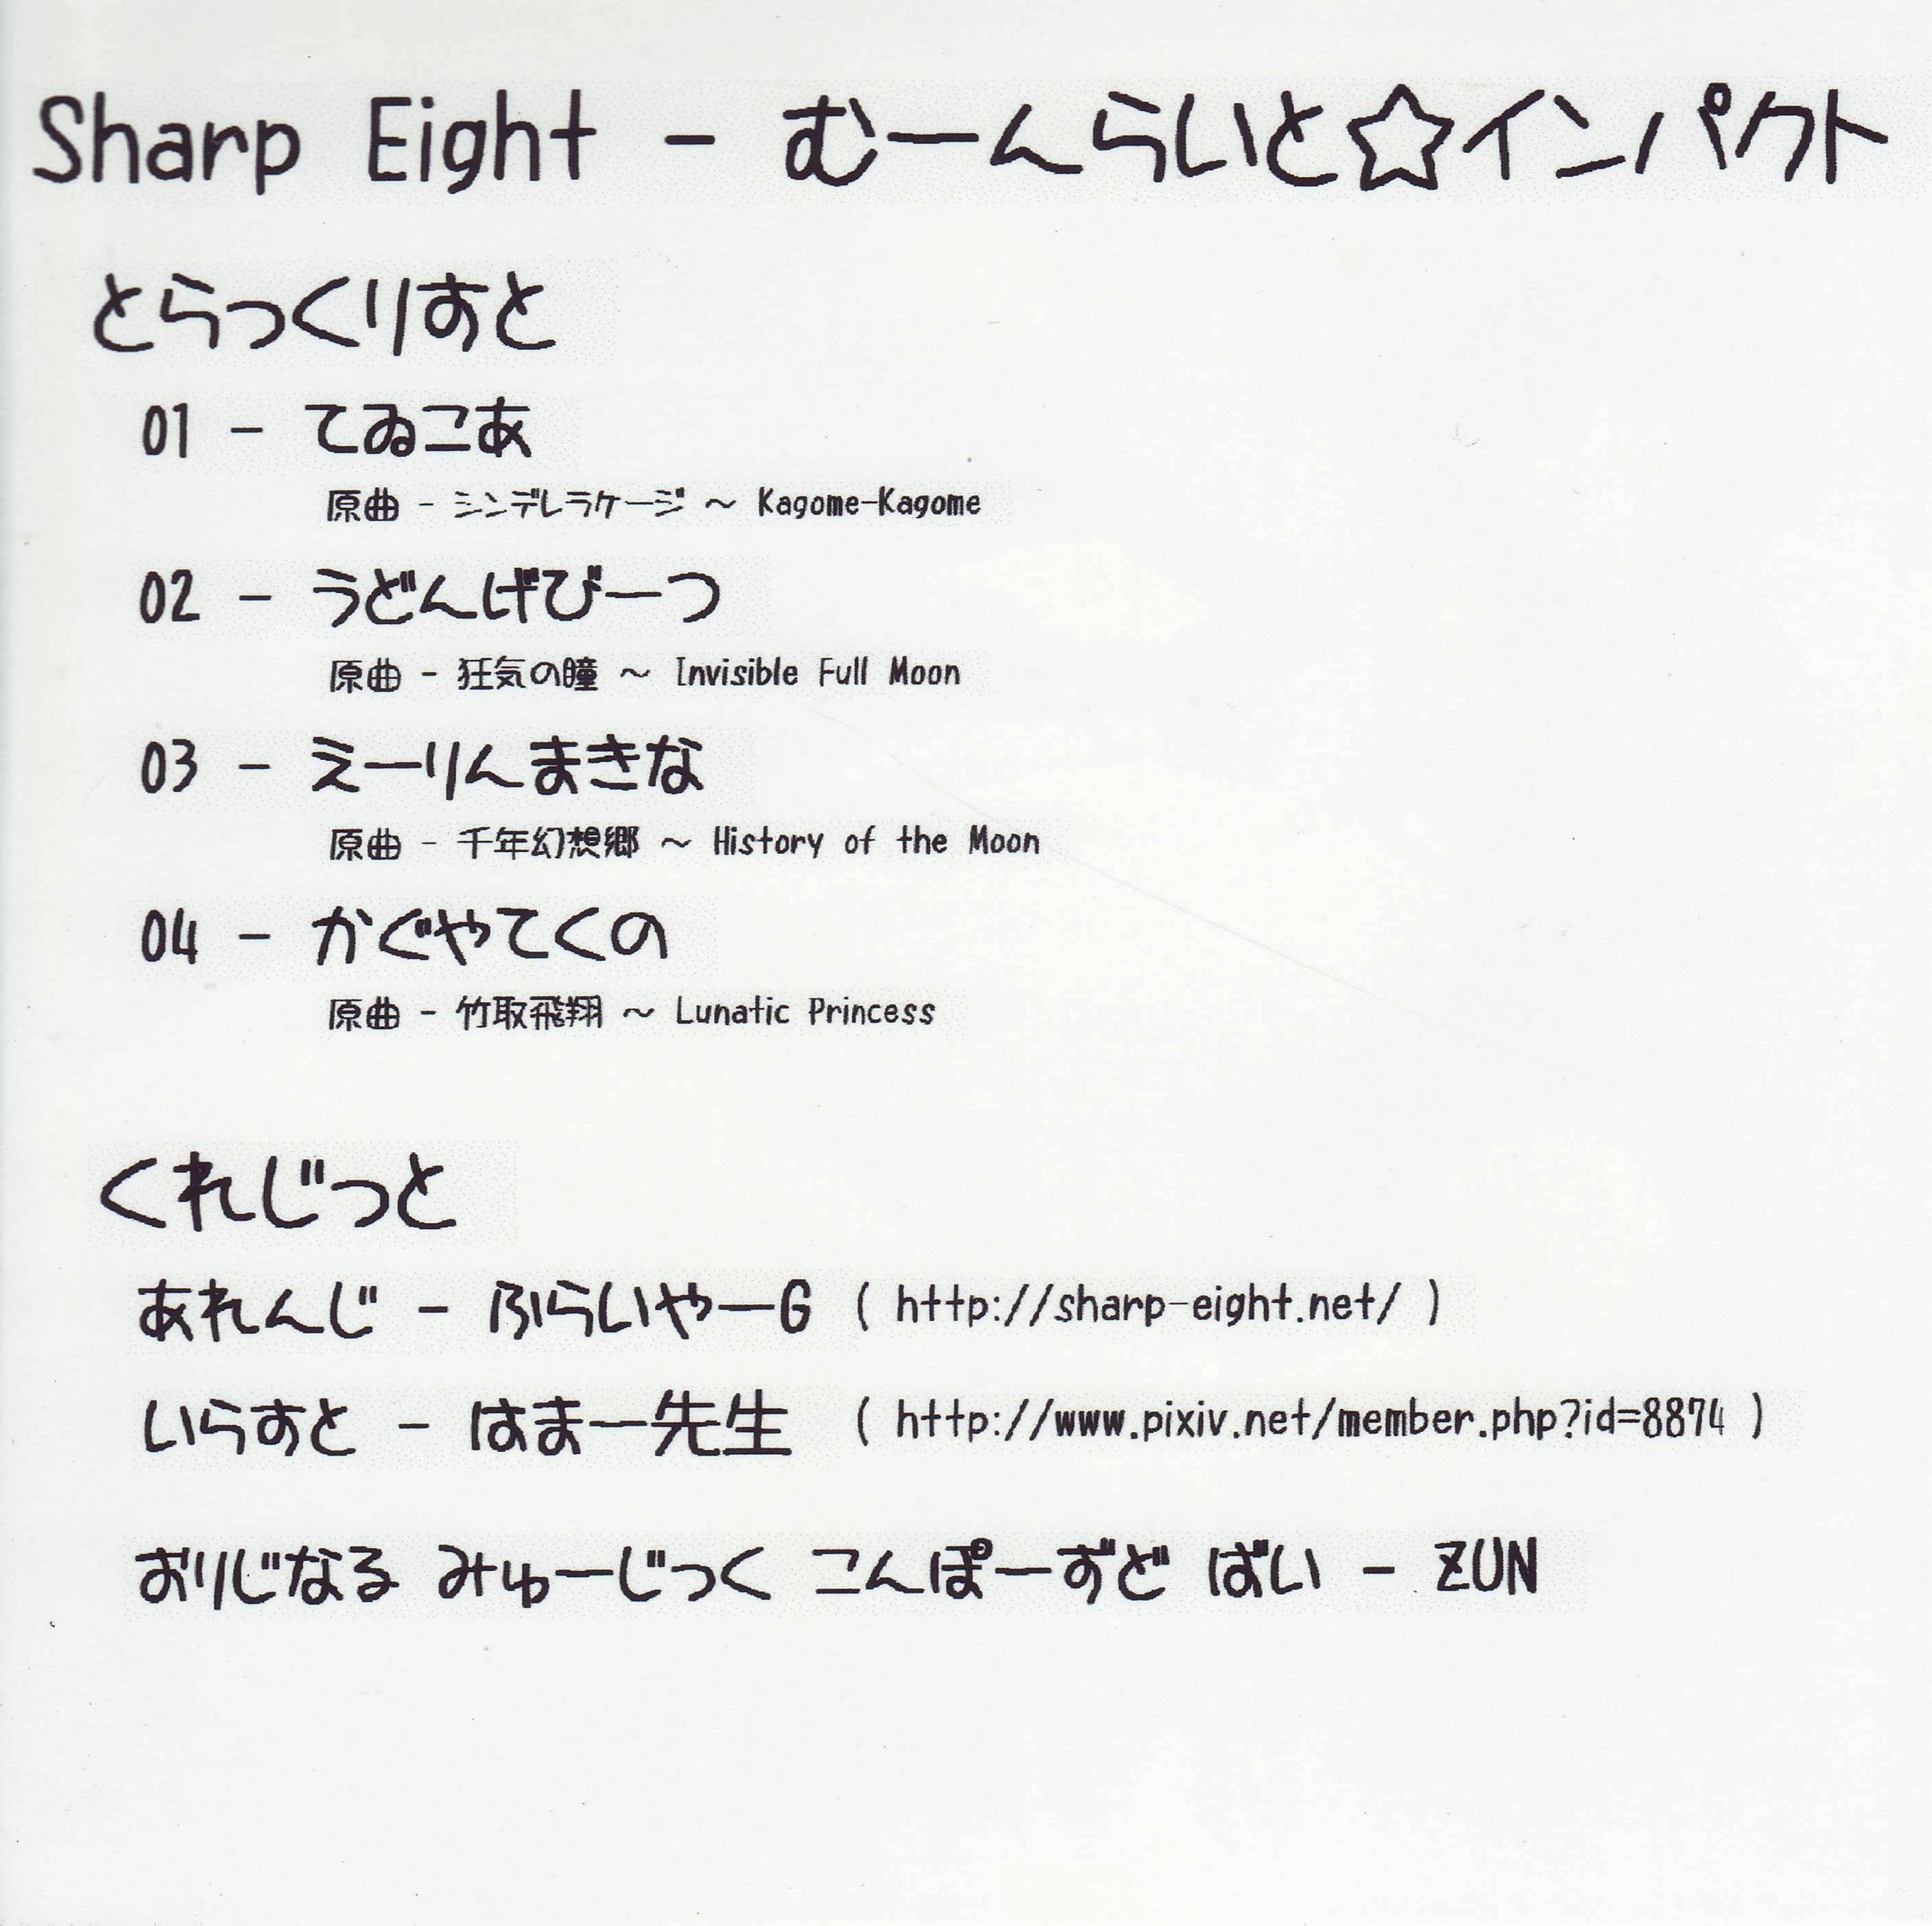 Sharp Eight - むーんらいと☆インパクト
とらっくりすと
01 - てゐこあ
原曲 - シンデレラケージ ～ Kagome-Kagome
02 - うどんげびーつ
原曲 - 狂気の瞳 ～ Invisible Full Moon
03 - えーりんまきな
原曲 - 千年幻想郷 ～ History of the Moon
04 - かぐやてくの
原曲 - 竹取飛翔 ～ Lunatic Princess
くれじっと
あれんじ - ふらいやーG ( http://sharp-eight.net/ )
いらすと - はまー先生 ( http://www.pixiv.net/member.php?id=8874 )
おりじなる みゅーじっく こんぽーずど ばい - ZUN